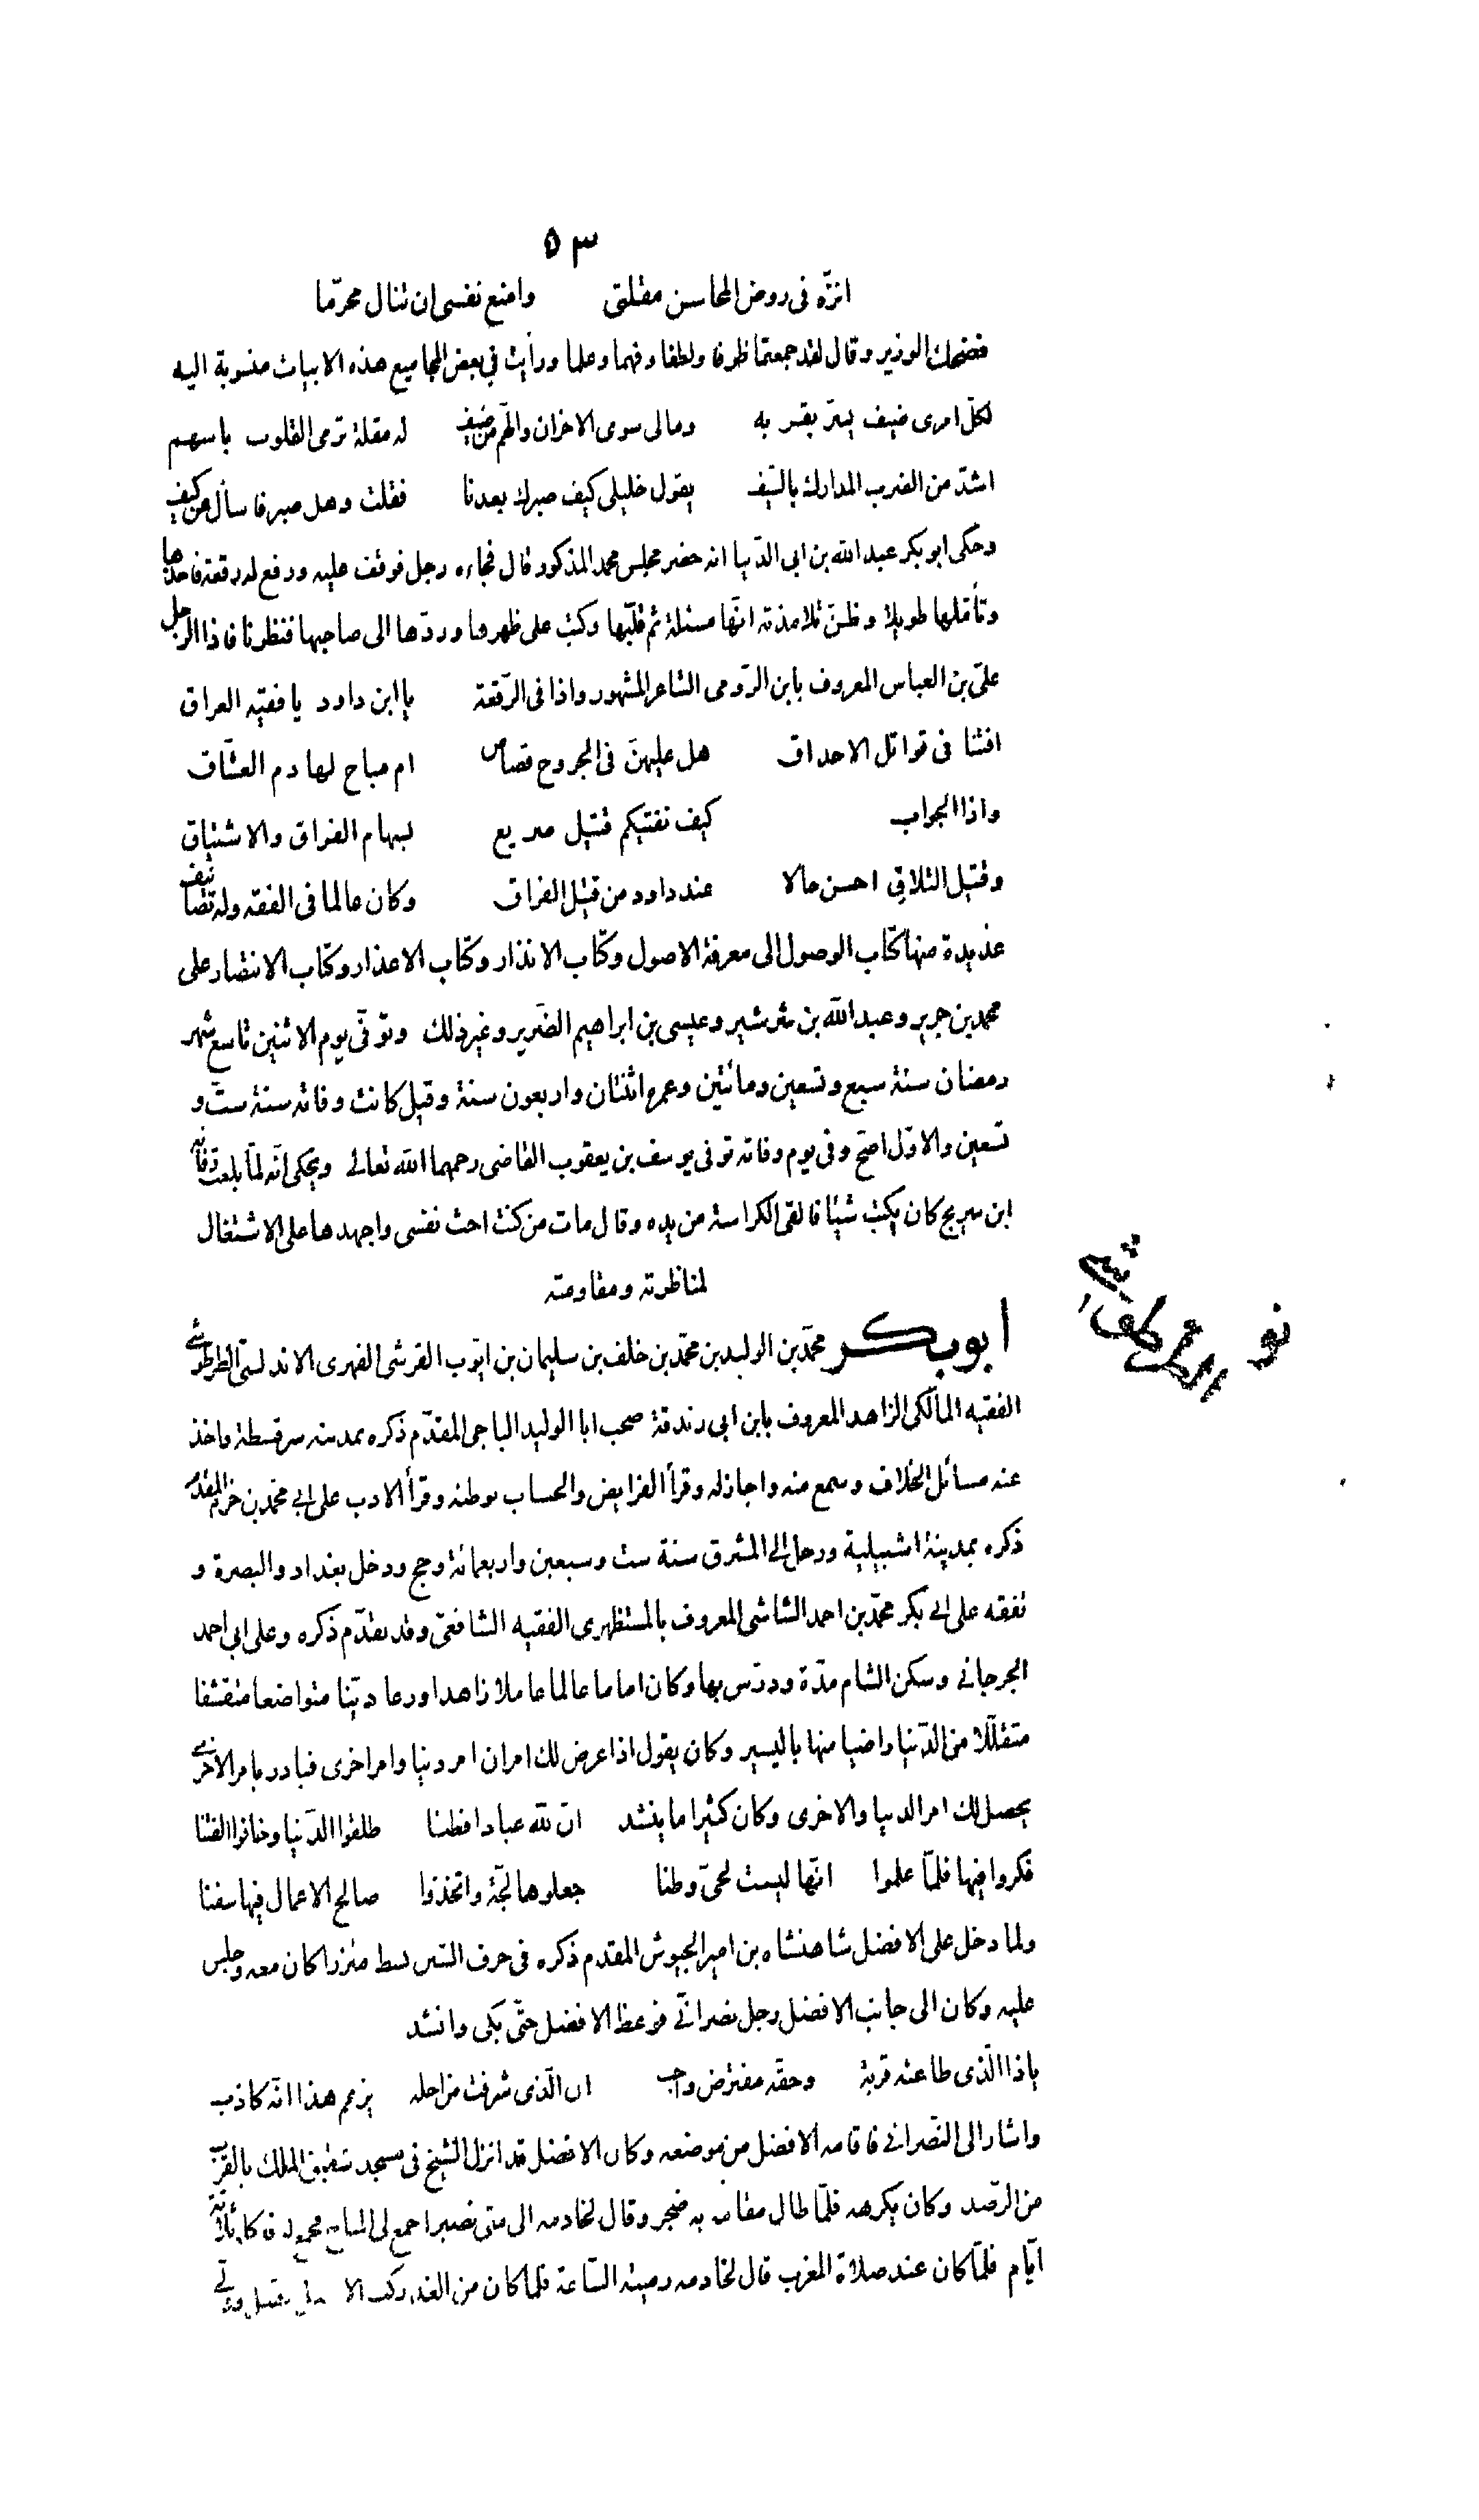 ٥٣
انزّه فى روض المحاسن مقلتى وامنع نفسى ان تنال محرّما
فضحك الوزير وقال لقد جمعتما ظرفا ولطفا وفهما وعلما ورأيت فى بعض المجاميع هذه الابيات منسوبة اليه
لكلّ امرى ضيف يسرّ بقربه ومالى سوى الاحزان والهمّ من ضيف له مقلة ترمى القلوب باسهم
اشدّ من الضرب المدارك بالسّيف يقول خليلى كيف صبرك بعدنا فقلت وهل صبر فاسأل عن كيف
وحكى ابو بكر عبد الله بن ابى الدّنيا انه حضر مجلس محمد المذكور قال فجاءه رجل فوقف عليه ورفع له رقعة فاخذها
وتأمّلها طويلا وظنّ تلامذته انّها مسئلة ثم قلّبها وكتب على ظهرها وردّها الى صاحبها فنظرنا فاذا الرجل
علىّ بن العباس المعروف بابن الرّومى الشاعر المشهور واذا فى الرّقعة يا ابن داود يا فقيه العراق
افتنا فى قواتل الاحداق هل عليهنّ فى الجروح قصاص ام مباح لها دم العشّاق
واذا الجواب كيف نفتيكم قتيل صريع بسهام الفراق والاشتياق
وقتيل التلاقى احسن حالا عند داود من قتيل الفراق وكان عالما فى الفقه وله تصانيف
عديدة منها كتاب الوصول الى معرفة الاصول وكتاب الانذار وكتاب الاعذار وكتاب الانتصار على
محمد بن جرير وعبد الله بن شرشير وعيسى بن ابراهيم الضّرير وغير ذلك وتوفّى يوم الاثنين تاسع شهر
رمضان سنة سبع وتسعين ومائتين وعمره اثنتان واربعون سنة وقيل كانت وفاته سنة ستّ و
تسعين والاوّل اصحّ وفى يوم وفاته توفى يوسف بن يعقوب القاضى رحمهما الله تعالى ويحكى انّه لمّا بلغت وفاته
ابن سريج كان يكتب شيئا فالقى الكراسة من يده وقال مات من كنت احث نفسى واجهدها على الاشتغال
لمناظرته ومقاومته
ابو بكر محمّد بن الوليد بن محمّد بن خلف بن سليمان بن ايّوب القرشى الفهرى الاندلسىّ الطرطوشى
الفقيه المالكى الزاهد المعروف بابن ابى رندقة صحب ابا الوليد الباجى المقدّم ذكره بمدينة سرقسطة واخذ
عنه مسائل الخلاف وسمع منه واجازله وقرأ الفرايض والحساب بوطنه وقرأ الادب على ابى محمد بن حزم المقدّم
ذكره بمدينة اشبيلية ورحل الى المشرق سنة ست وسبعين واربعمائة وحج ودخل بغداد والبصرة و
تفقه على ابى بكر محمّد بن احمد الشاشى المعروف بالمستظهرى الفقيه الشافعىّ وقد تقدّم ذكره وعلى ابى احمد
الجرجانى وسكن الشام مدّة ودرّس بها وكان اماما عالما عاملا زاهدا ورعا ديّنا متواضعا متقشفا
متقلّلا من الدّنيا راضيا منها باليسير وكان يقول اذا عرض لك امران امر دنيا وامر اخرى فبادر بامر الاخرى
يحصل لك امر الدنيا والاخرى وكان كثيرا ما ينشد انّ لله عبادا فطنا طلقوا الدّنيا وخافوا الفتنا
فكروا فيها فلمّا علموا انّها ليست لحىّ وطنا جعلوها لجّة واتخذوا صالح الاعمال فيها سفنا
ولما دخل على الافضل شاهنشاه بن امير الجيوش المقدم ذكره فى حرف الشين بسط مئزرا كان معه وجلس
عليه وكان الى جانب الافضل رجل نصرانىّ فوعظ الافضل حتّى بكى وانشد
ياذا الّذى طاعته قربة وحقّه مفترض واجب ان الّذى شرفت من اجله يزعم هذا انّه كاذب
واشار الى النّصرانى فاقامه الافضل من موضعه وكان الافضل قد انزل الشيخ فى مسجد شقيق الملك بالقرب
من الرّصد وكان يكرهه فلمّا طال مقامه به ضجر وقال لخادمه الى متى نصبر اجمع لى المباح فجمع له فاكله ثلاثة
ايّام فلمّا كان عند صلاة المغرب قال لخادمه رميته السّاعة فلما كان من الغد ركب الافضل فقتل وولى